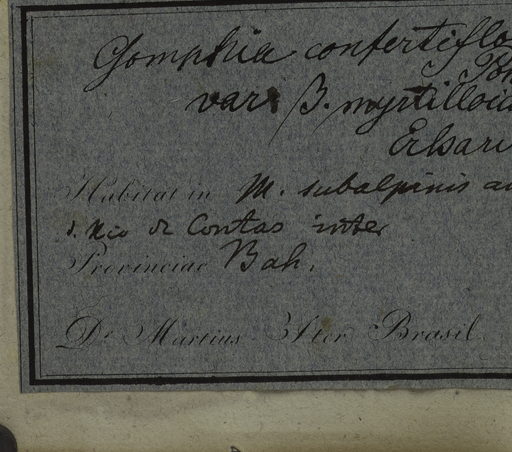 Gomphia confertiflo
Poh
var. β. myrtilloid
Habitat in M. subalpinis
s. Rio de Contas inter
Provinciae Bah.
Dr. Martius Iter Brasil